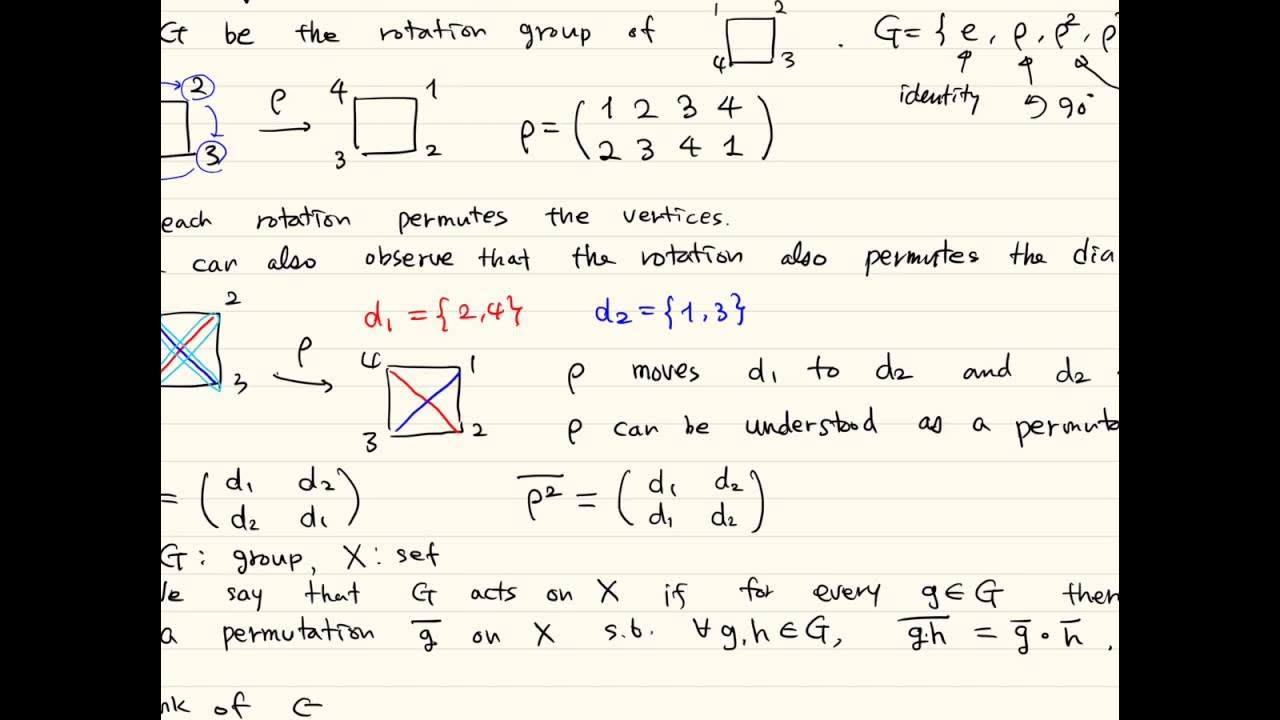 G be the rotation group of 1 2 4 3 . G = { e, ρ, ρ², ρ
identity ↺ 90°
2 3 ρ → 4 1 3 2 ρ = ( 1 2 3 4 / 2 3 4 1 )
each rotation permutes the vertices.
can also observe that the rotation also permutes the dia
2 3 ρ → d₁ = {2,4} d₂ = {1,3}
4 1 3 2 ρ moves d₁ to d₂ and d₂
ρ can be understood as a permuta
= ( d₁ d₂ / d₂ d₁ ) \overline{ρ²} = ( d₁ d₂ / d₁ d₂ )
G : group, X : set
We say that G acts on X if for every g ∈ G ther
a permutation \overline{g} on X s.t. ∀ g,h ∈ G, \overline{g·h} = \overline{g} ∘ \overline{h} .
nk of G